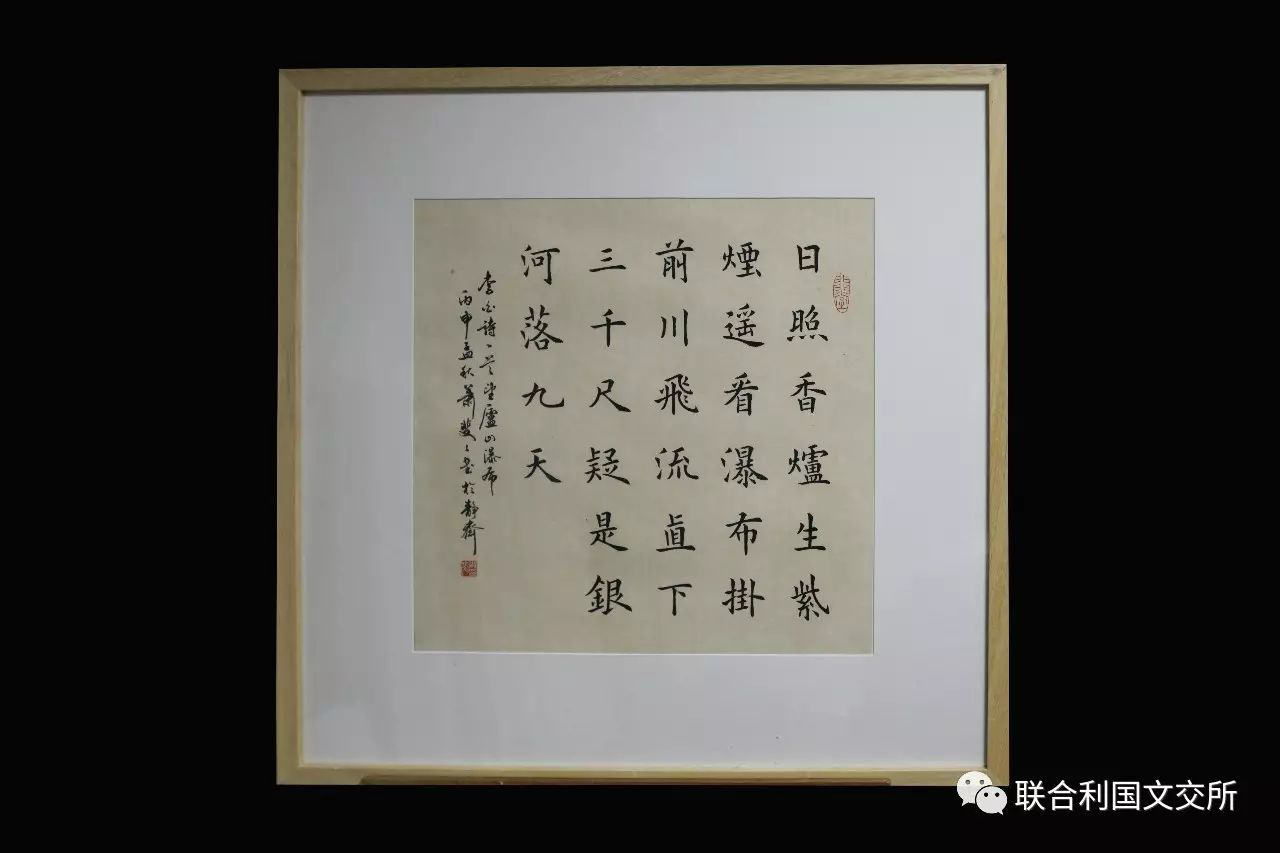 日照香爐生紫
煙遥看瀑布掛
前川飛流直下
三千尺疑是銀
河落九天
李白詩一首望廬山瀑布
丙申孟秋蕭斐斐書於靜齋
联合利国文交所